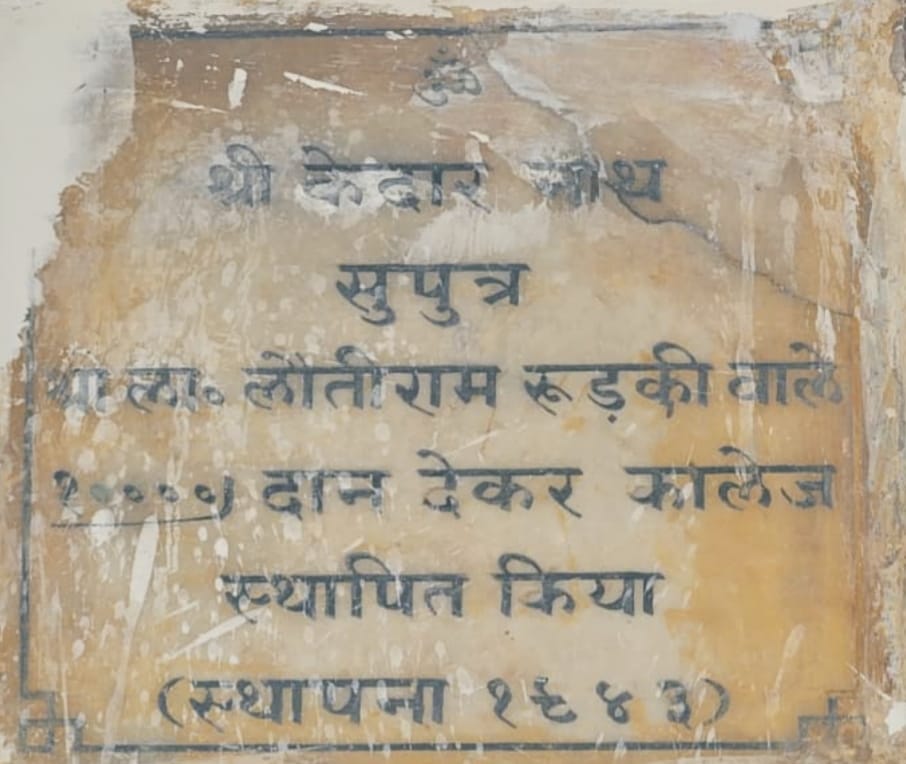 ॐ
श्री केदार नाथ
सुपुत्र
श्री ला० लौतीराम रूड़की वाले
१००००) दान देकर कालेज
स्थापित किया
(स्थापना १९४३)